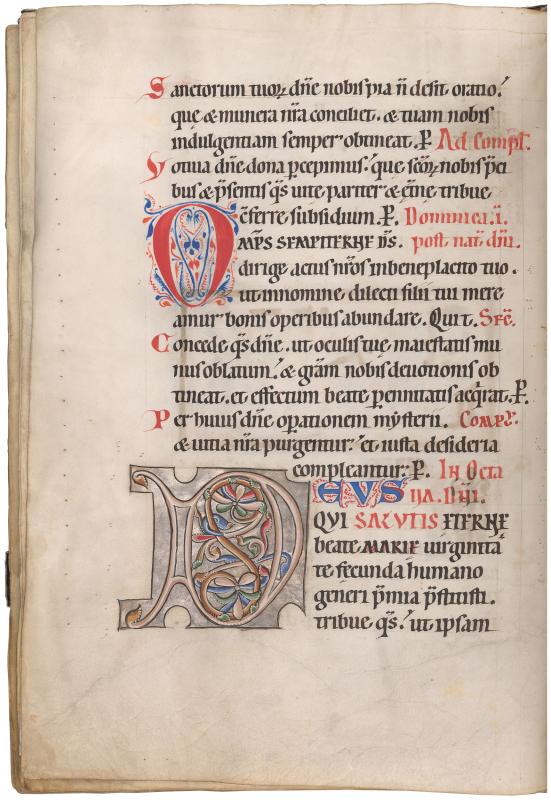 Sanctorum tuoꝝ dñe nobis pia ñ desit oratio.
que & munera nr̃a conciliet. & tuam nobis
indulgentiam semper obtineat. P̲. Ad Compl̃.
Votiua dñe dona p̲cepimus. que scõꝝ nobis p̃ci
bus & p̃sentis q̃s uite pariter & et̃ne tribue
c̃ferre subsidium. P̲. Dominica .i.
OMP̃S SEMPITERNE D̃S. post nat̃ dñi.
dirige actus nr̃os in beneplacito tuo.
ut in nomine dilecti filii tui mere
amur bonis operibus abundare. Qui t. Scr̃e.
Concede q̃s dñe. ut oculis tue maiestatis mu
nus oblatum. & gr̃am nobis deuotionis ob
tineat. et effectum beate p̲ennitatis acq̃rat. P̲.
Per huius dñe op̲ationem mysterii. Compl̃.
& uitia nr̃a purgentur. et iusta desideria
compleantur. P̲. IN Octa
DEVS UA. DÑI.
QVI SALVTIS ETERNE
beate MARIE uirginita
te fecunda humano
generi p̃mia p̃stitisti.
tribue q̃s. ut ipsam